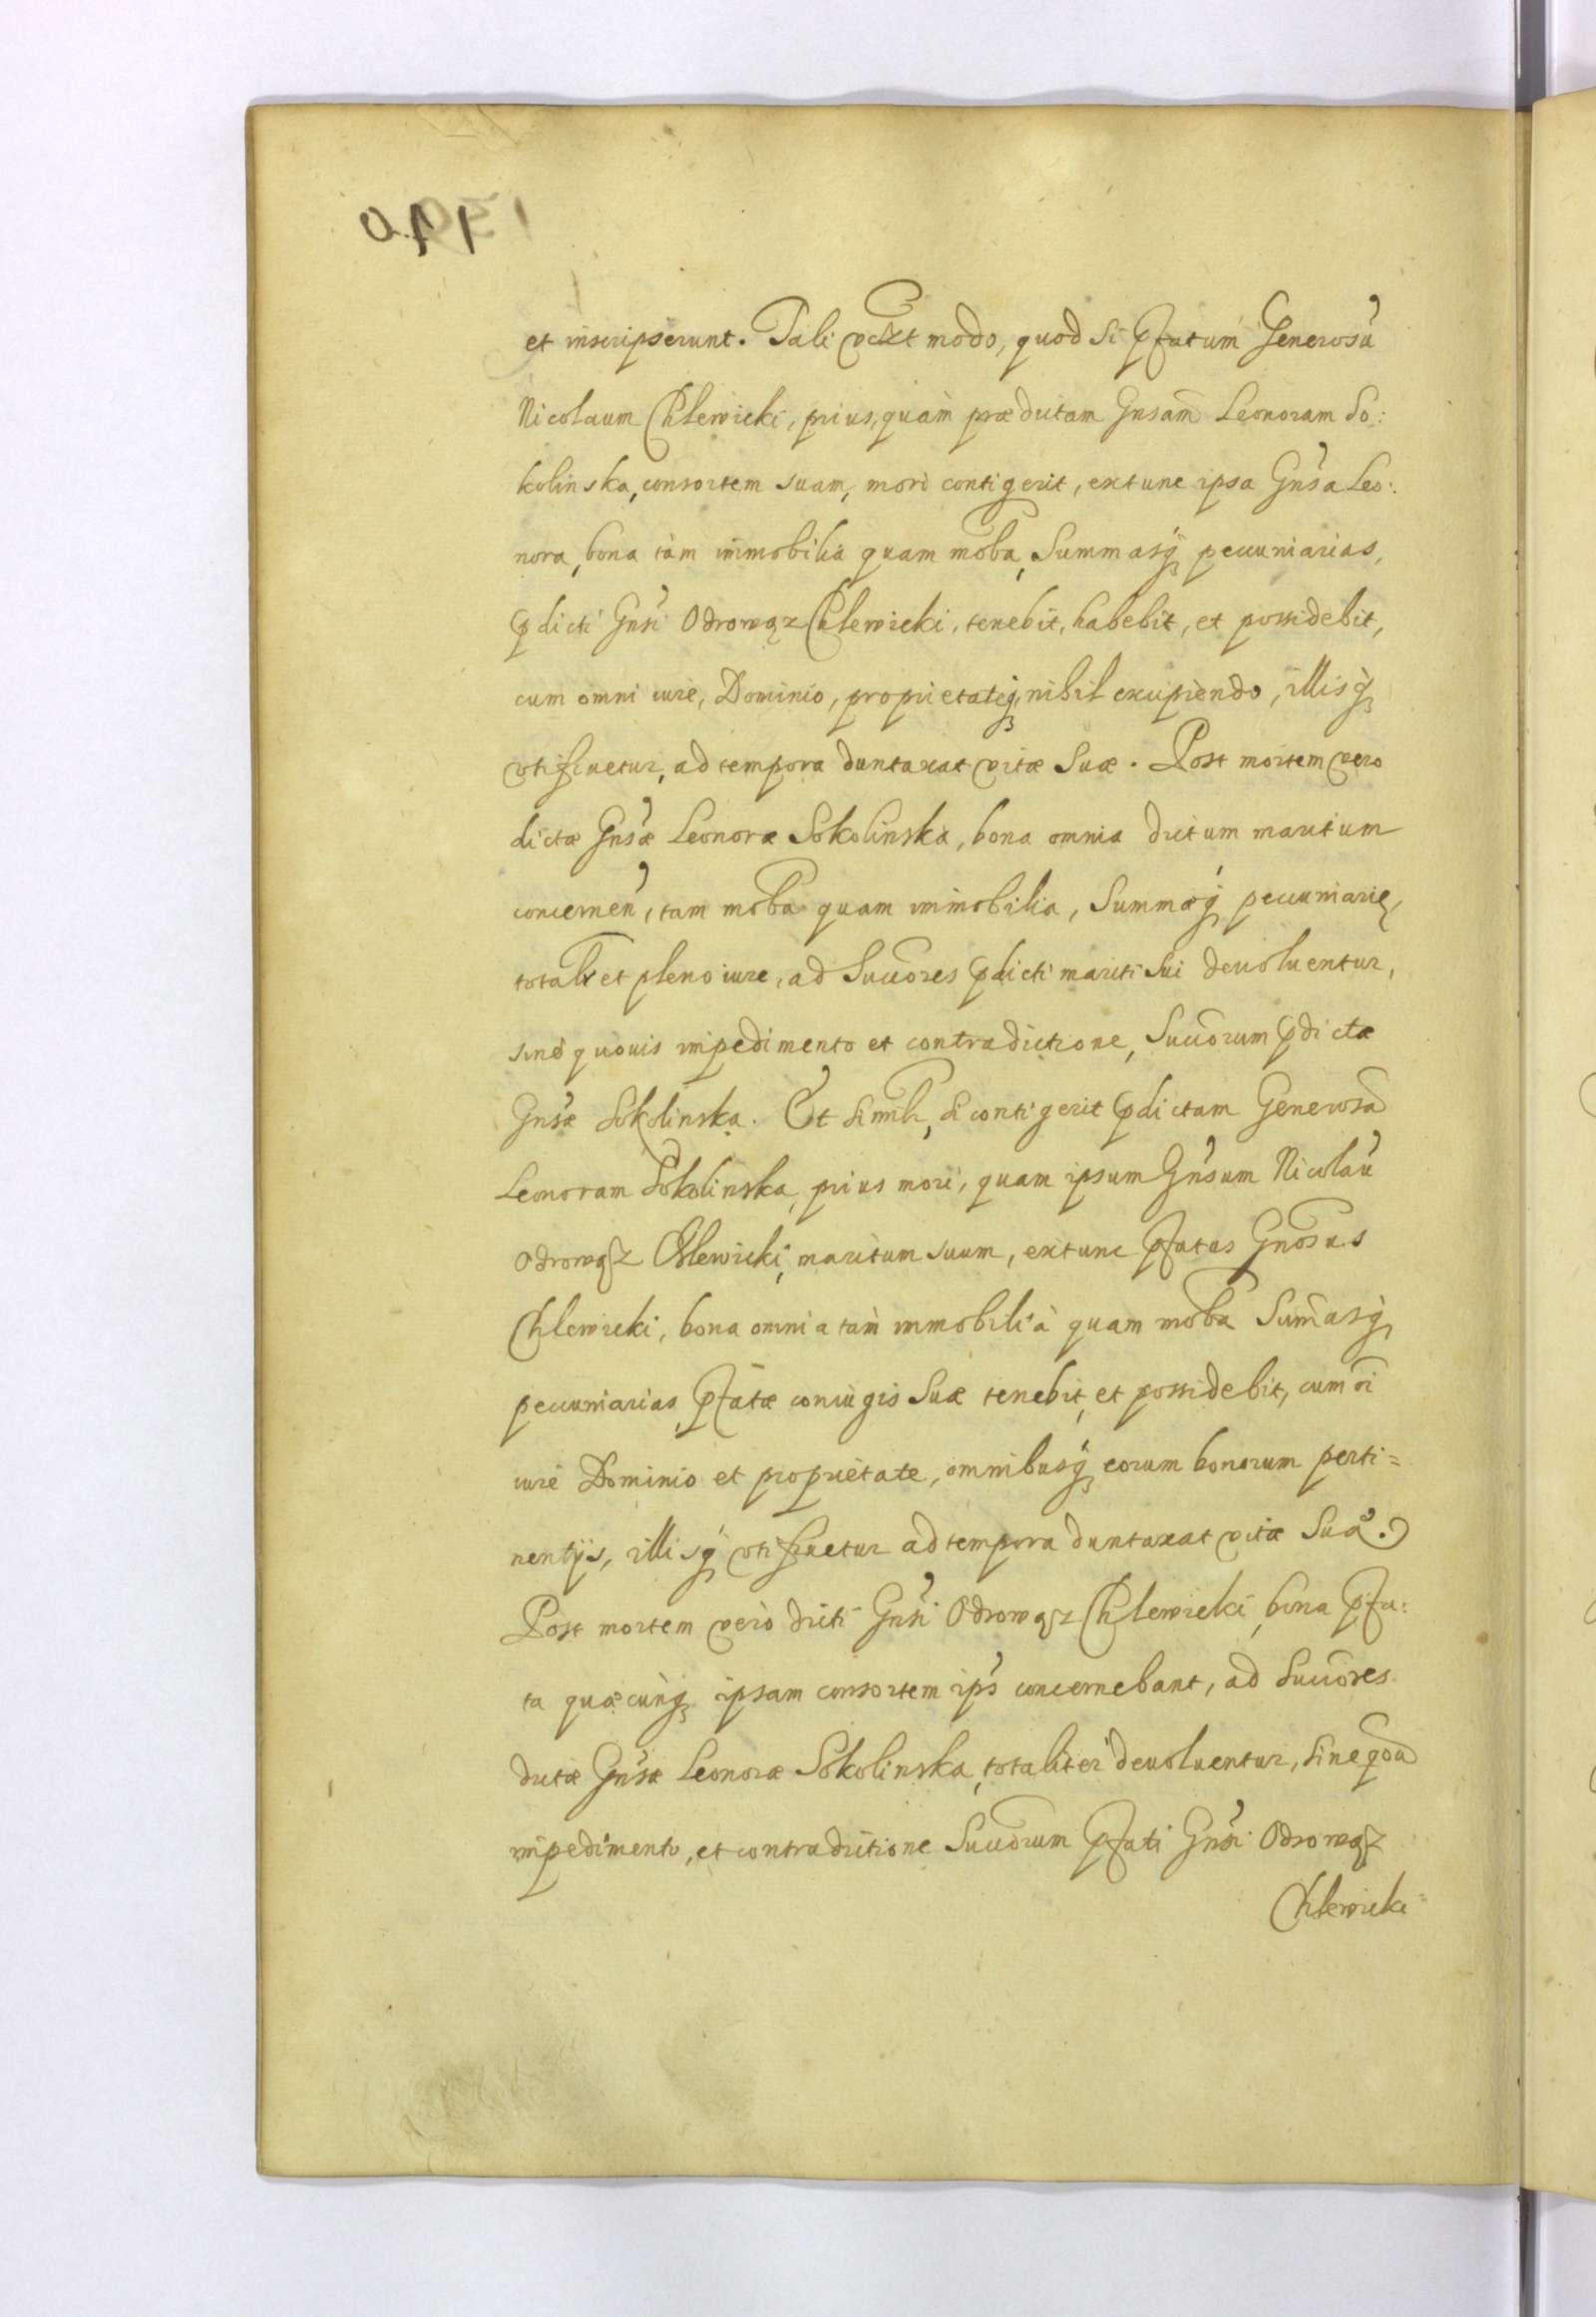 et inscripserunt. Tali vdzt modo, quod si Pfatum Generosũ
Nicolaum Chlewicki, prius, quàm prædictam Gnsam̃ Leonoram So:
kolinska, consortem suam, mori contigerit, extunc ipsa Gnsa Leo:
nora, bona tàm immobilia quam moba, Summasq pecuniarias,
pdicti Gnsi Odrowąz Chlewicki, tenebit, habebit, et possidebit,
cum omni iure, Dominio, proprietateq, nihil excipiendo, illisq
vti fruetur, ad tempora duntaxat vitæ Suæ. Post mortem vero
dictæ Gnsæ Leonoræ Sokolinska, bona omnia dictum maritum
concernen, tam moba quam immobilia, Summæq pecuniariæ,
totalr et pleno iure, ad Succores pdicti mariti Sui deuoluentur,
sine quouis impedimento et contradictione, Succorum pdictæ
Gnsæ Sokolinska. Et simlr, si contigerit pdictam Generosã
Leonoram Sokolinska, prius mori, quam ipsum Gnsum Nicolaũ
Odrowąz Chlewicki, maritum suum, extunc Pfatus Gnosus
Chlewicki, bona omnia tàm immobilià quam moba Sum̃asq
pecuniarias, Pfatæ coniugis Suæ tenebit, et possidebit, cum oi
iure Dominio et proprietate, omnibusq eorum bonorum perti=
nentijs, illisq vti fruetur ad tempora duntaxat vitæ Suæ.
Post mortem verò dicti Gnsi Odrowąz Chlewicki, bona Pfa:
ta quæcunq ipsam consortem ips concernebant, ad Succores
dictæ Gnsæ Leonoræ Sokolinska, totaliter deuoluentur, sine qoũ
impedimento, et contradictione Succorum Pfati Gnsi Odrowąz
Chlewicki